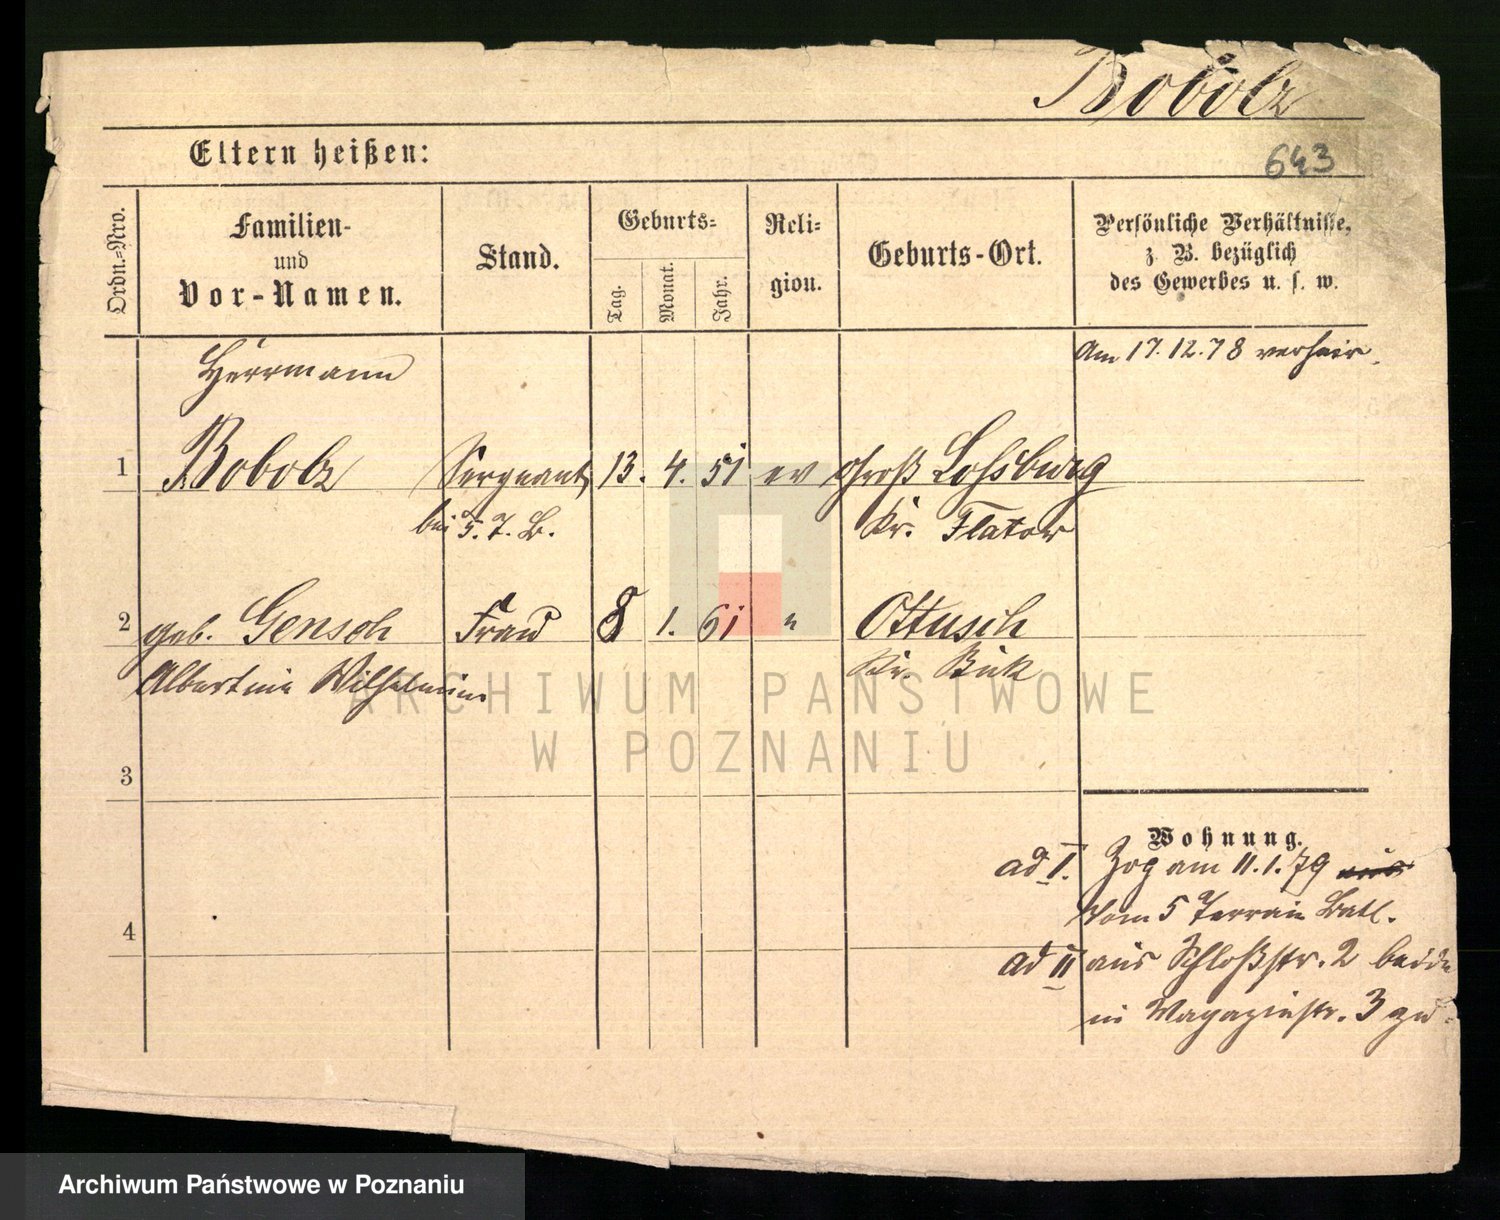 Bobolz
Eltern heißen:
643
Ordn.=Nro.
Familien-
und
Vor-Namen.
Stand.
Geburts=
Tag.
Monat.
Jahr.
Reli=
gion.
Geburts-Ort.
Persönliche Verhältnisse,
z. B. bezüglich
des Gewerbes u. s. w.
Herrmann
Am 17.12.78 verheir.
1 Bobolz Sergeant 13. 4. 51 ev Groß Lohsburg
bei 5. T. B. Kr. Flatow
2 geb. Gensch Frau 8 1. 61 " Ottusch
Albertine Wilhelmine Kr. Buk
ARCHIWUM PAŃSTWOWE
W POZNANIU
3
Wohnung.
ad I. Zog am 11.1.79
vom 5 Terrain Batl.
4
ad II aus Schloßstr. 2 beide
in Magazinstr. 3 zu.
Archiwum Państwowe w Poznaniu